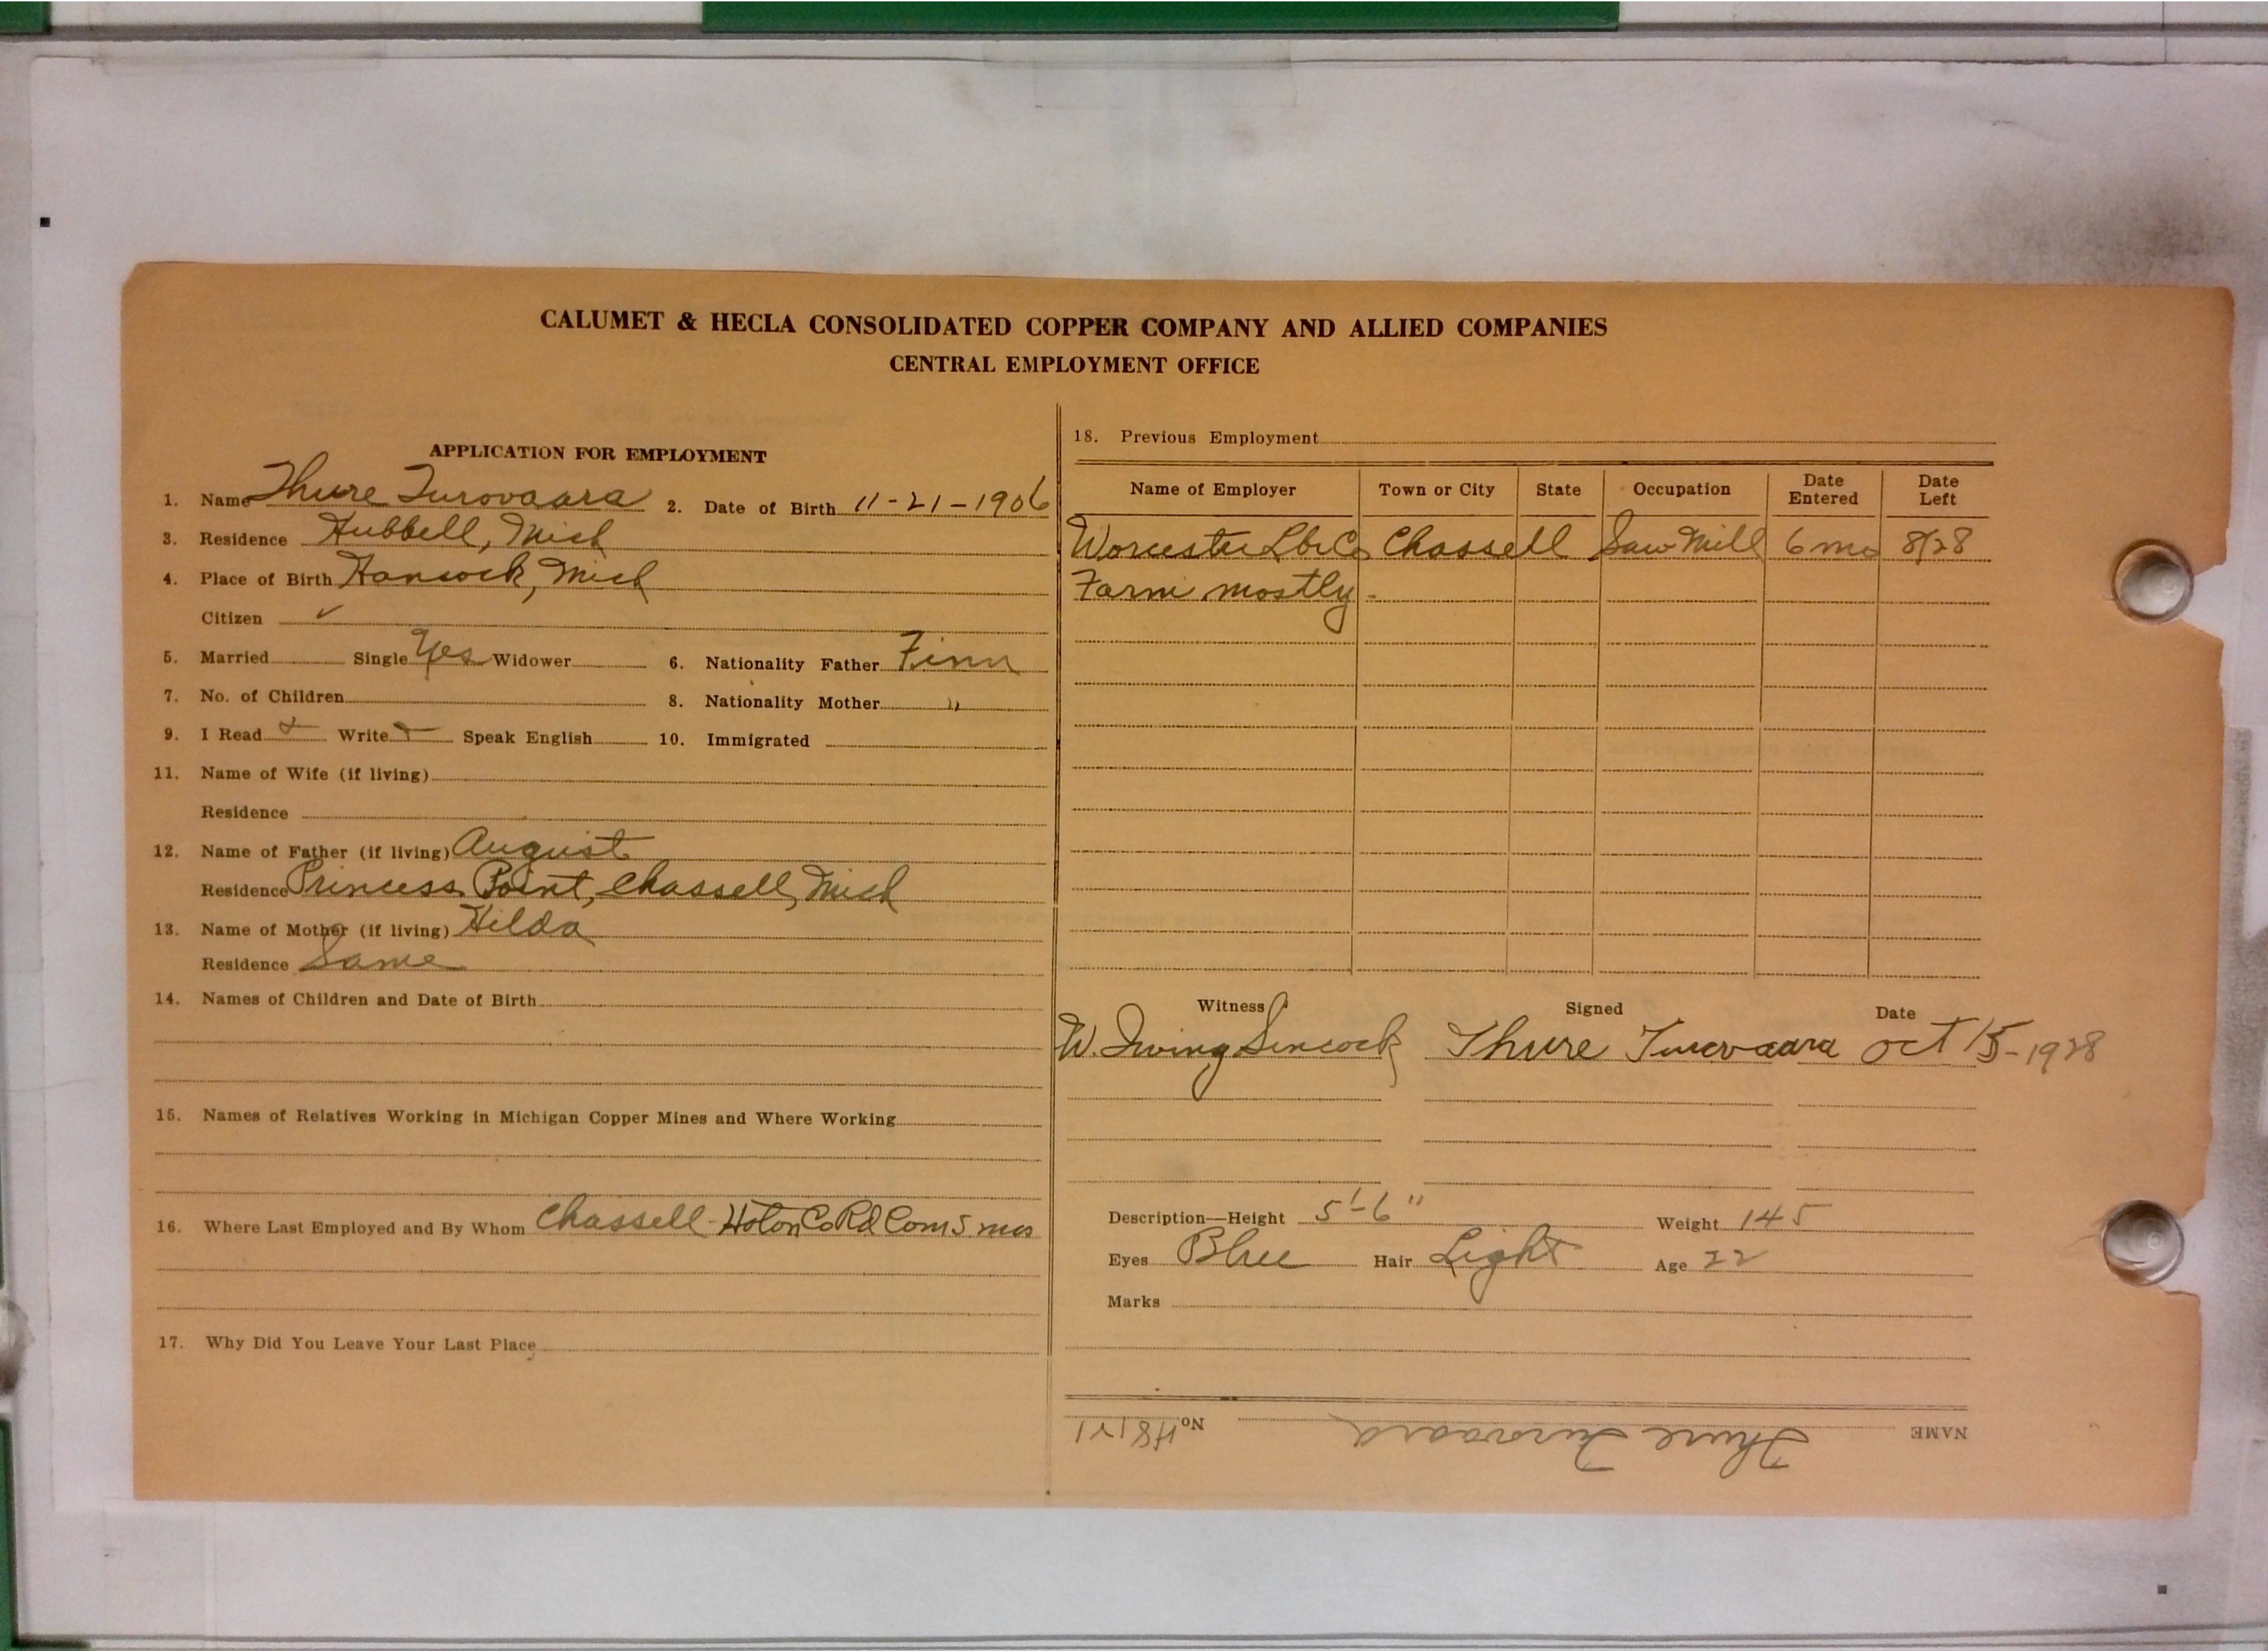 CALUMET & HECLA CONSOLIDATED COPPER COMPANY AND ALLIED COMPANIES
CENTRAL EMPLOYMENT OFFICE
APPLICATION FOR EMPLOYMENT
1. Name Thure Turovaara 2. Date of Birth 11-21-1906
3. Residence Hubbell, Mich
4. Place of Birth Hancock, Mich
Citizen ✓
5. Married Single Yes Widower 6. Nationality Father Finn
7. No. of Children 8. Nationality Mother "
9. I Read Write Speak English 10. Immigrated
11. Name of Wife (if living)
Residence
12. Name of Father (if living) August
Residence Princess Point, Chassell, Mich
13. Name of Mother (if living) Hilda
Residence Same
14. Names of Children and Date of Birth
15. Names of Relatives Working in Michigan Copper Mines and Where Working
16. Where Last Employed and By Whom Chassell - Hoton Co Rd Com 5 mos
17. Why Did You Leave Your Last Place
18. Previous Employment
Name of Employer Town or City State Occupation Date Entered Date Left
Worcester Lbr Co Chassell Saw Mill 6 mo 8/28
Farm mostly -
Witness Signed Date
W. Irving Sincock Thure Turovaara Oct 15-1928
Description—Height 5'-6" Weight 145
Eyes Blue Hair Light Age 22
Marks
NAME Thure Turovaara No H8171